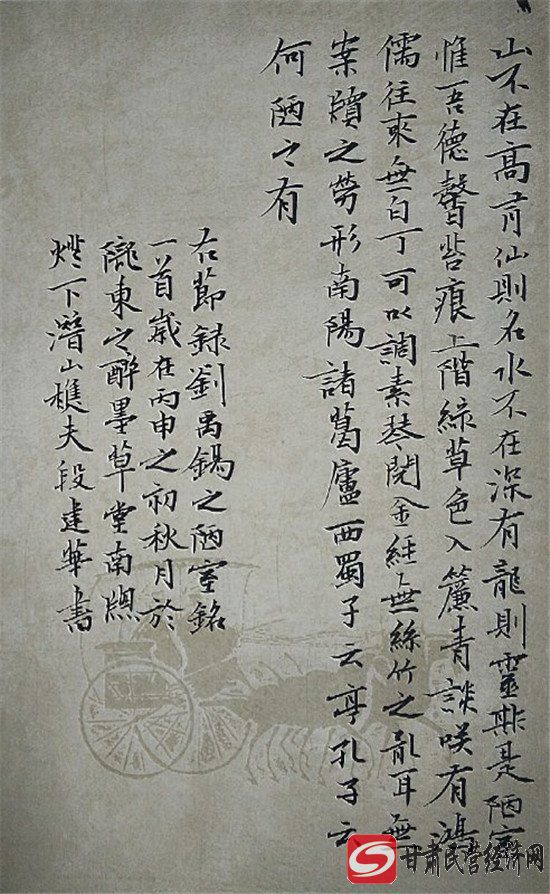 山不在高有仙則名水不在深有龍則靈斯是陋室
惟吾德馨苔痕上階綠草色入簾青談咲有鴻
儒往來無白丁可以調素琴閱金經無絲竹之亂耳無
案牘之勞形南陽諸葛廬西蜀子云亭孔子云
何陋之有
右節録劉禹錫之陋室銘
一首歲在丙申之初秋月於
隴東之醉墨草堂南牕
燈下潛山樵夫段建華書
甘肃民营经济网